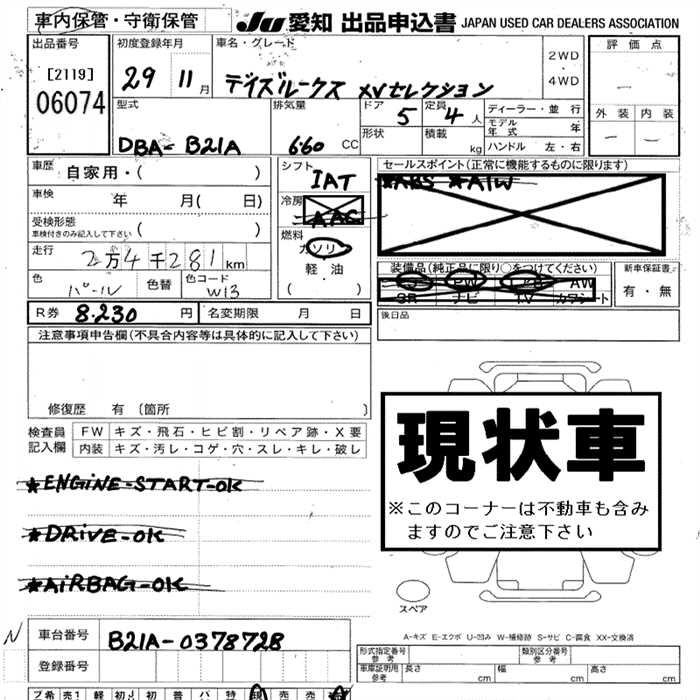 車内保管・守衛保管 JU 愛知 出品申込書 JAPAN USED CAR DEALERS ASSOCIATION
出品番号 初度登録年月 車名・グレード 2WD ・ 4WD 評価点
[2119] 29 11月 デイズルークス XVセレクション
06074 外装 内装
型式 排気量 ドア 5 定員 4人 ディーラー・並行
DBA-B21A 660 CC 形状 積載 kg モデル年式 年
ハンドル 左・右
車歴 自家用・( ) シフト IAT セールスポイント(正常に機能するものに限ります)
★ABS ★A/W
車検 年 月( 日) 冷房 AAC
受検形態 ( )
車検付きのみ記入して下さい
燃料 ガソリン
軽・油
( ・ )
走行 2万4千281km
装備品(純正品に限り○をつけてください) 新車保証書
PW AW 有・無
SR ナビ TV カワシート
色 パール 色替 色コード W13
後日品
R券 8.230 円 名変期限 月 日
注意事項申告欄(不具合内容等は具体的に記入して下さい)
修復歴 有(箇所 )
現状車
※このコーナーは不動車も含み
ますのでご注意下さい
検査員 FW キズ・飛石・ヒビ割・リペア跡・X要
記入欄 内装 キズ・汚レ・コゲ・穴・スレ・キレ・破レ
★ENGiNE-START-OK
★DRiVE-OK
★AiRBAG-OK
スペア
A-キズ E-エクボ U-凹み W-補修跡 S-サビ C-腐食 XX-交換済
N 車台番号 B21A-0378728
登録番号
形式指定番号 参考 類別区分番号 参考
車庫証明用 参考 長さ cm 幅 cm 高さ cm